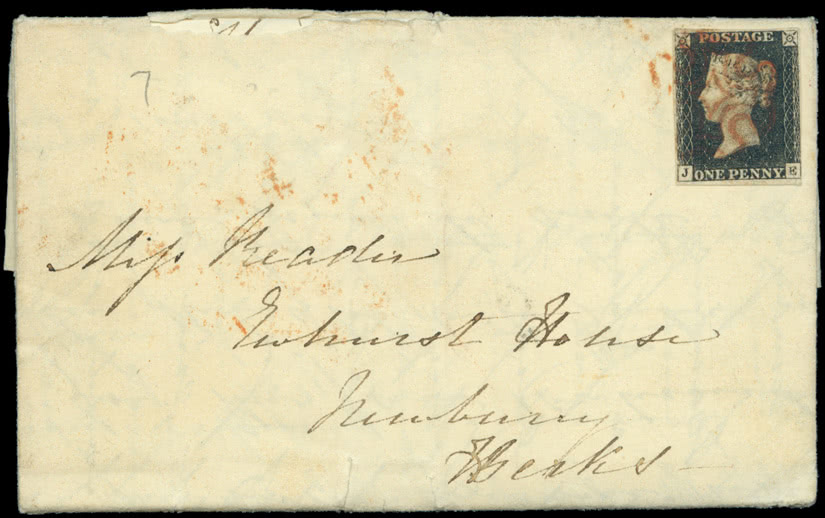 7
POSTAGE
J E
ONE PENNY
Miss Reader
Ewhurst House
Newbury
Berks